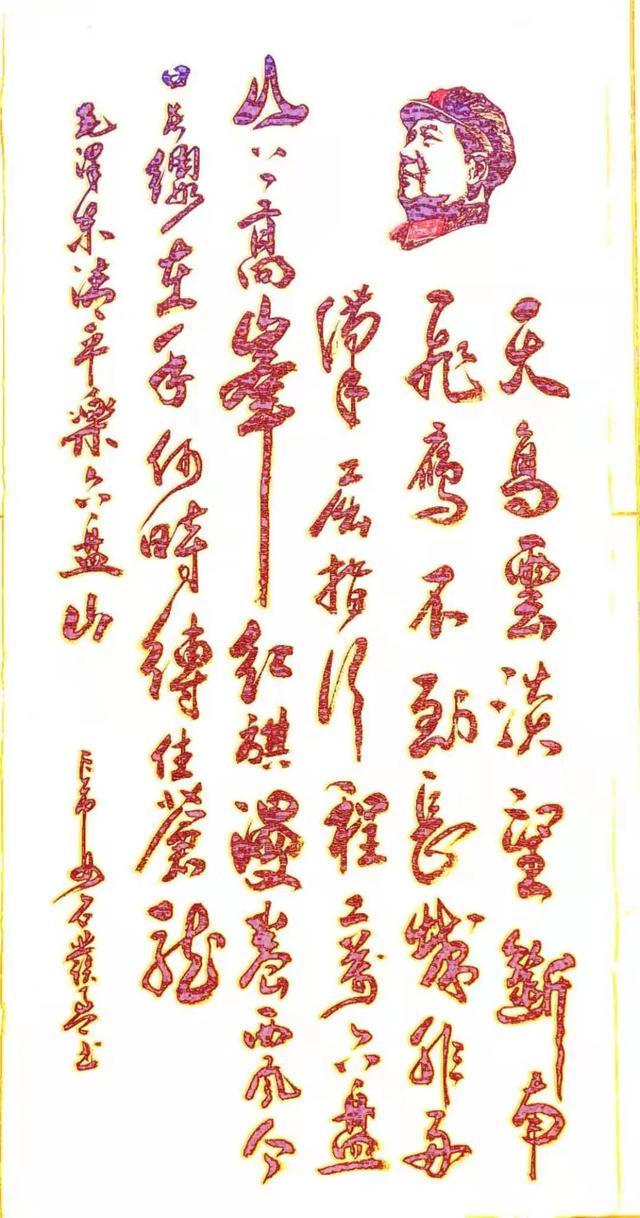 天高雲淡望斷南
飛鴈不到長城非好
漢屈指行程二萬六盘
山上高峯紅旗漫卷西風今
日長纓在手何時縛住蒼龍
毛澤東清平樂六盘山